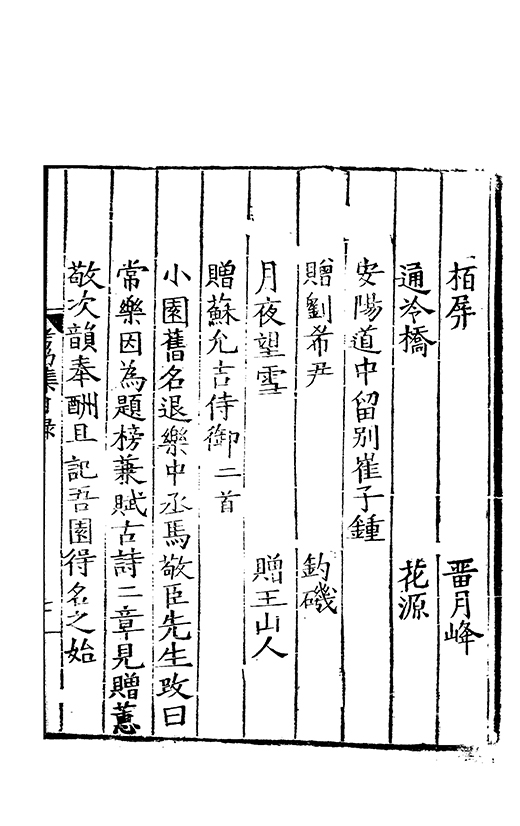 栢屏　畱月峰
通冷橋　花源
安陽道中留别崔子鍾
贈劉希尹　釣磯
月夜望雪　贈王山人
贈蘇允吉侍御二首
小園舊名退樂中丞馬敬臣先生攺曰
常樂因為題榜蒹賦古詩二章見贈蕙
敬次韻奉酬且記吾園得名之始
集目錄